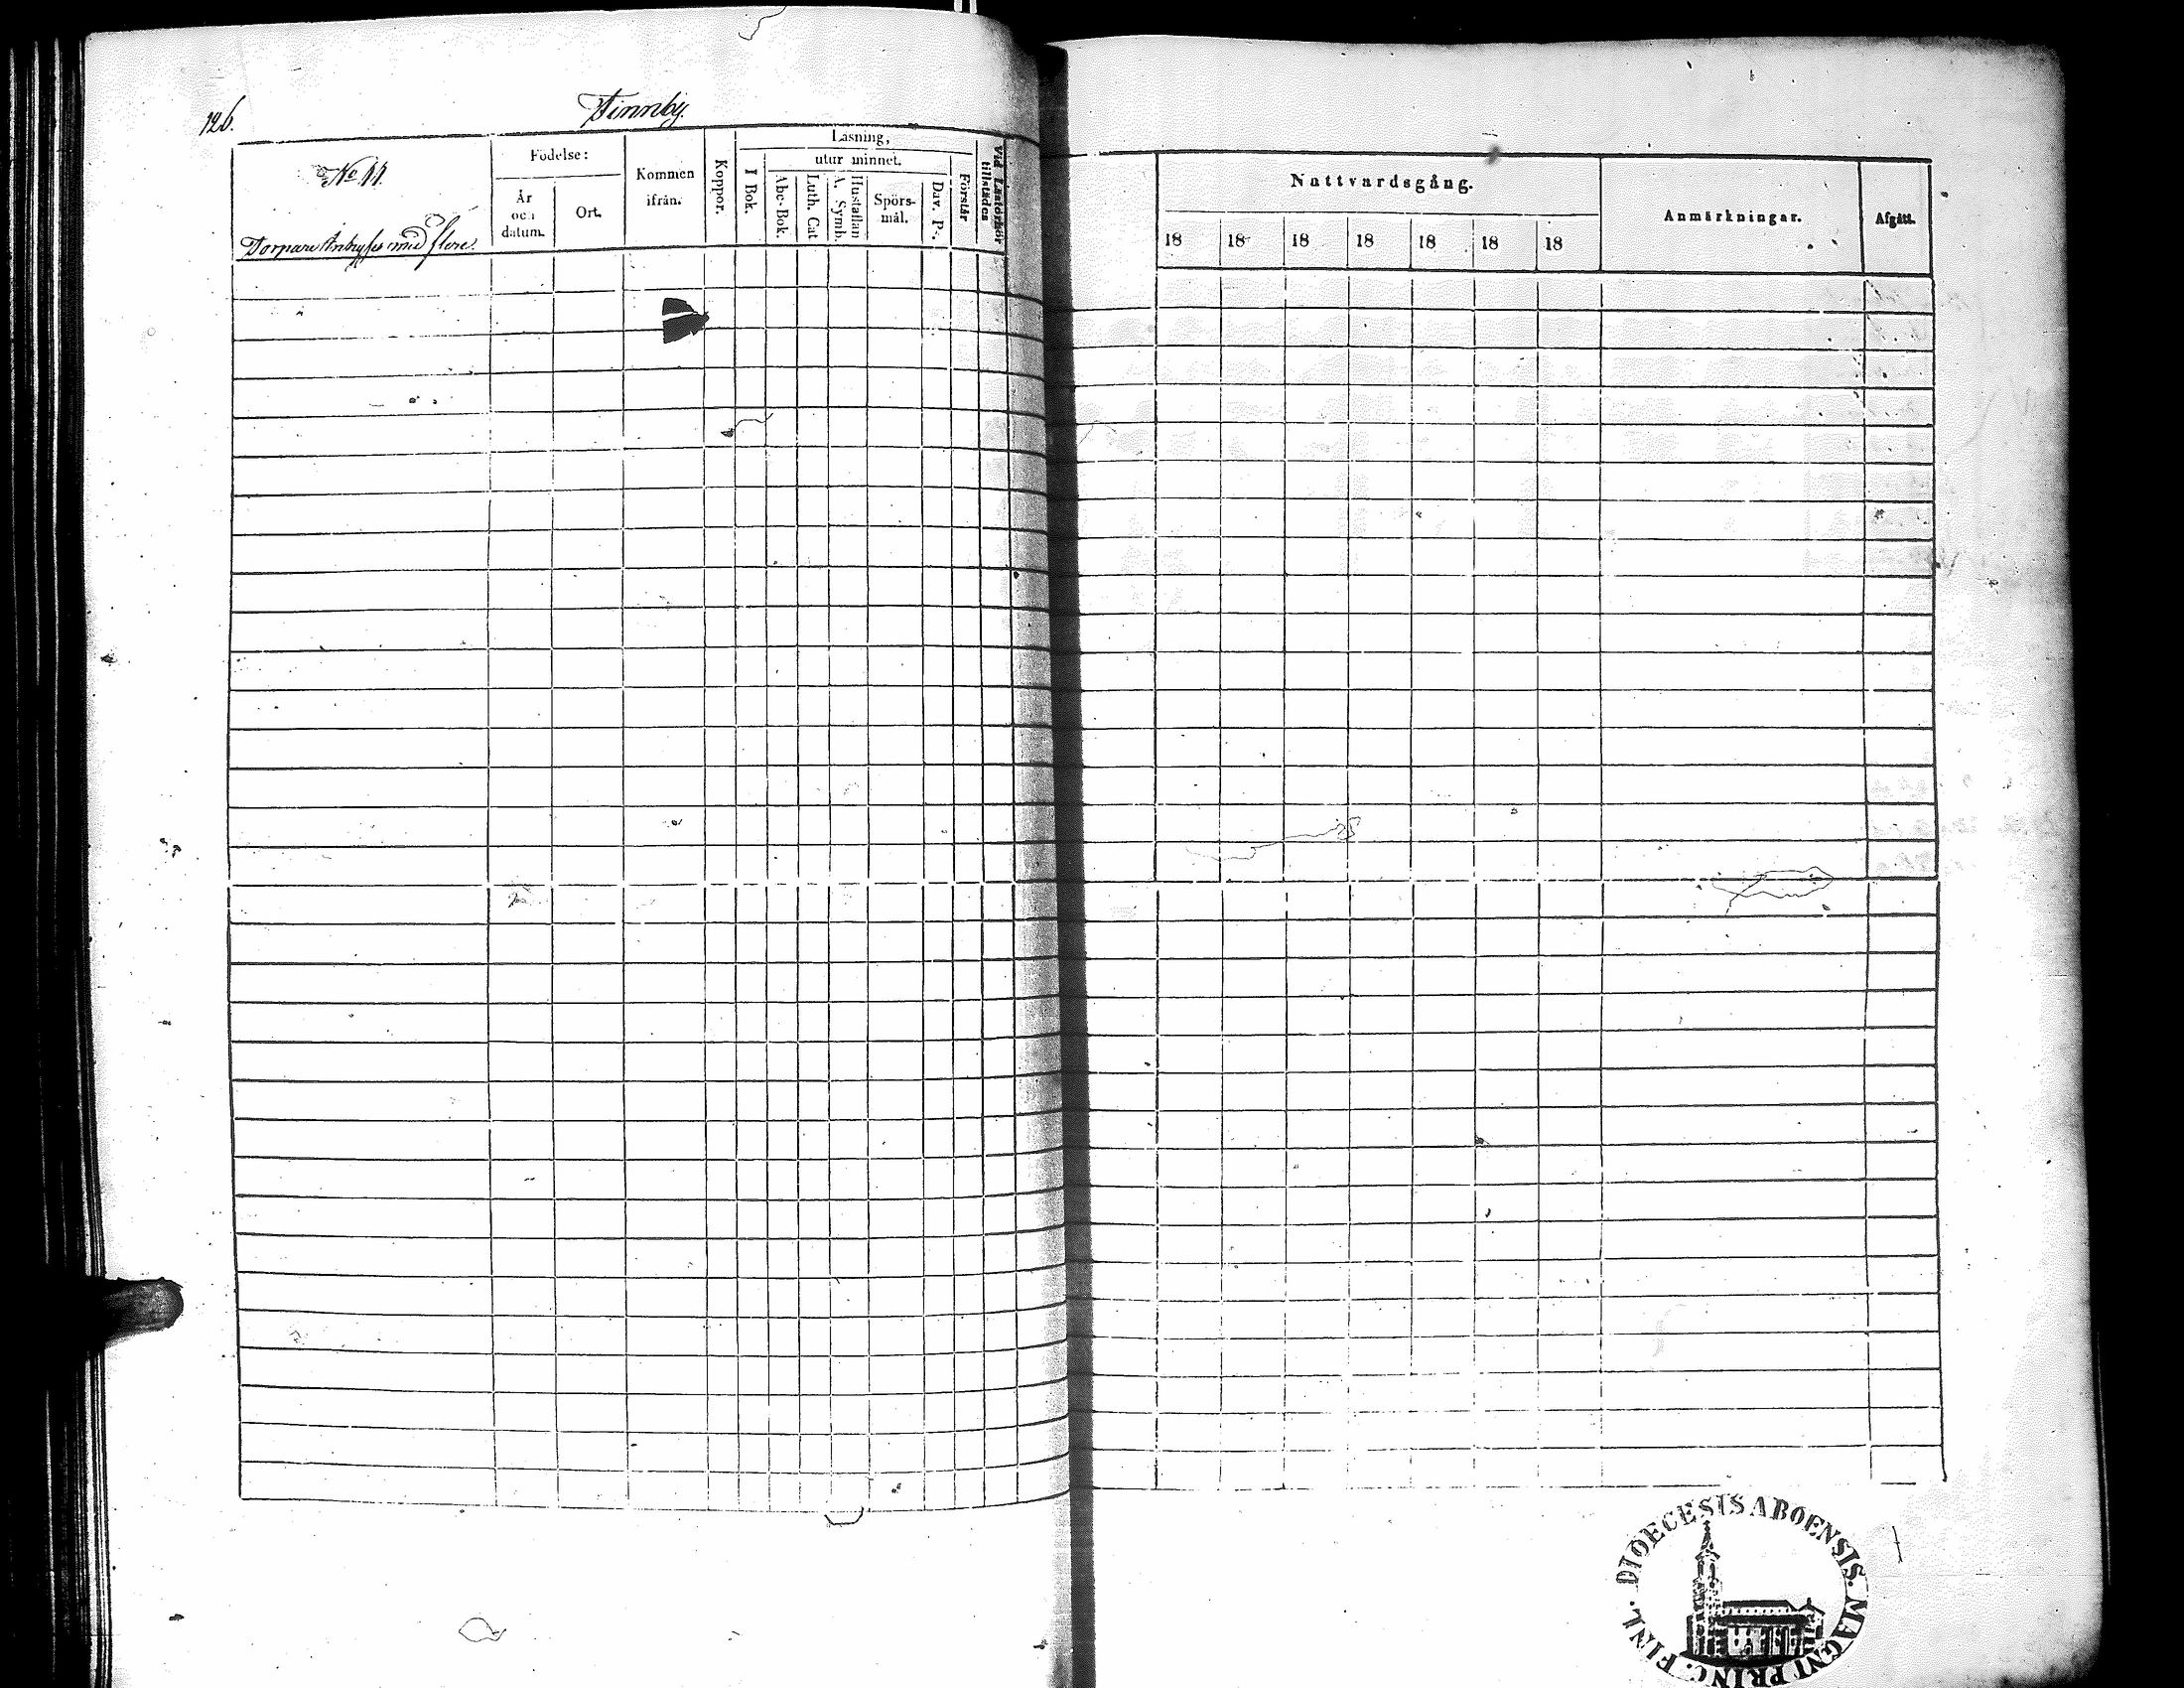 126.
Finnby.
No 11.
Torpare Anbyske med flere.
Födelse:
År och datum.
Ort.
Kommen ifrån.
Koppor.
Läsning,
I Bok.
utur minnet.
Abc-Bok.
Luth. Cat
Hustaflan A. Symb.
Spörs-mål.
Dav. Ps.
Förstår
Vid Läsförhör tillstädes
Nattvardsgång.
18 18 18 18 18 18 18
Anmärkningar.
Afgått.
DIOECESIS ABOENSIS. MAGNI PRINC. FINL.